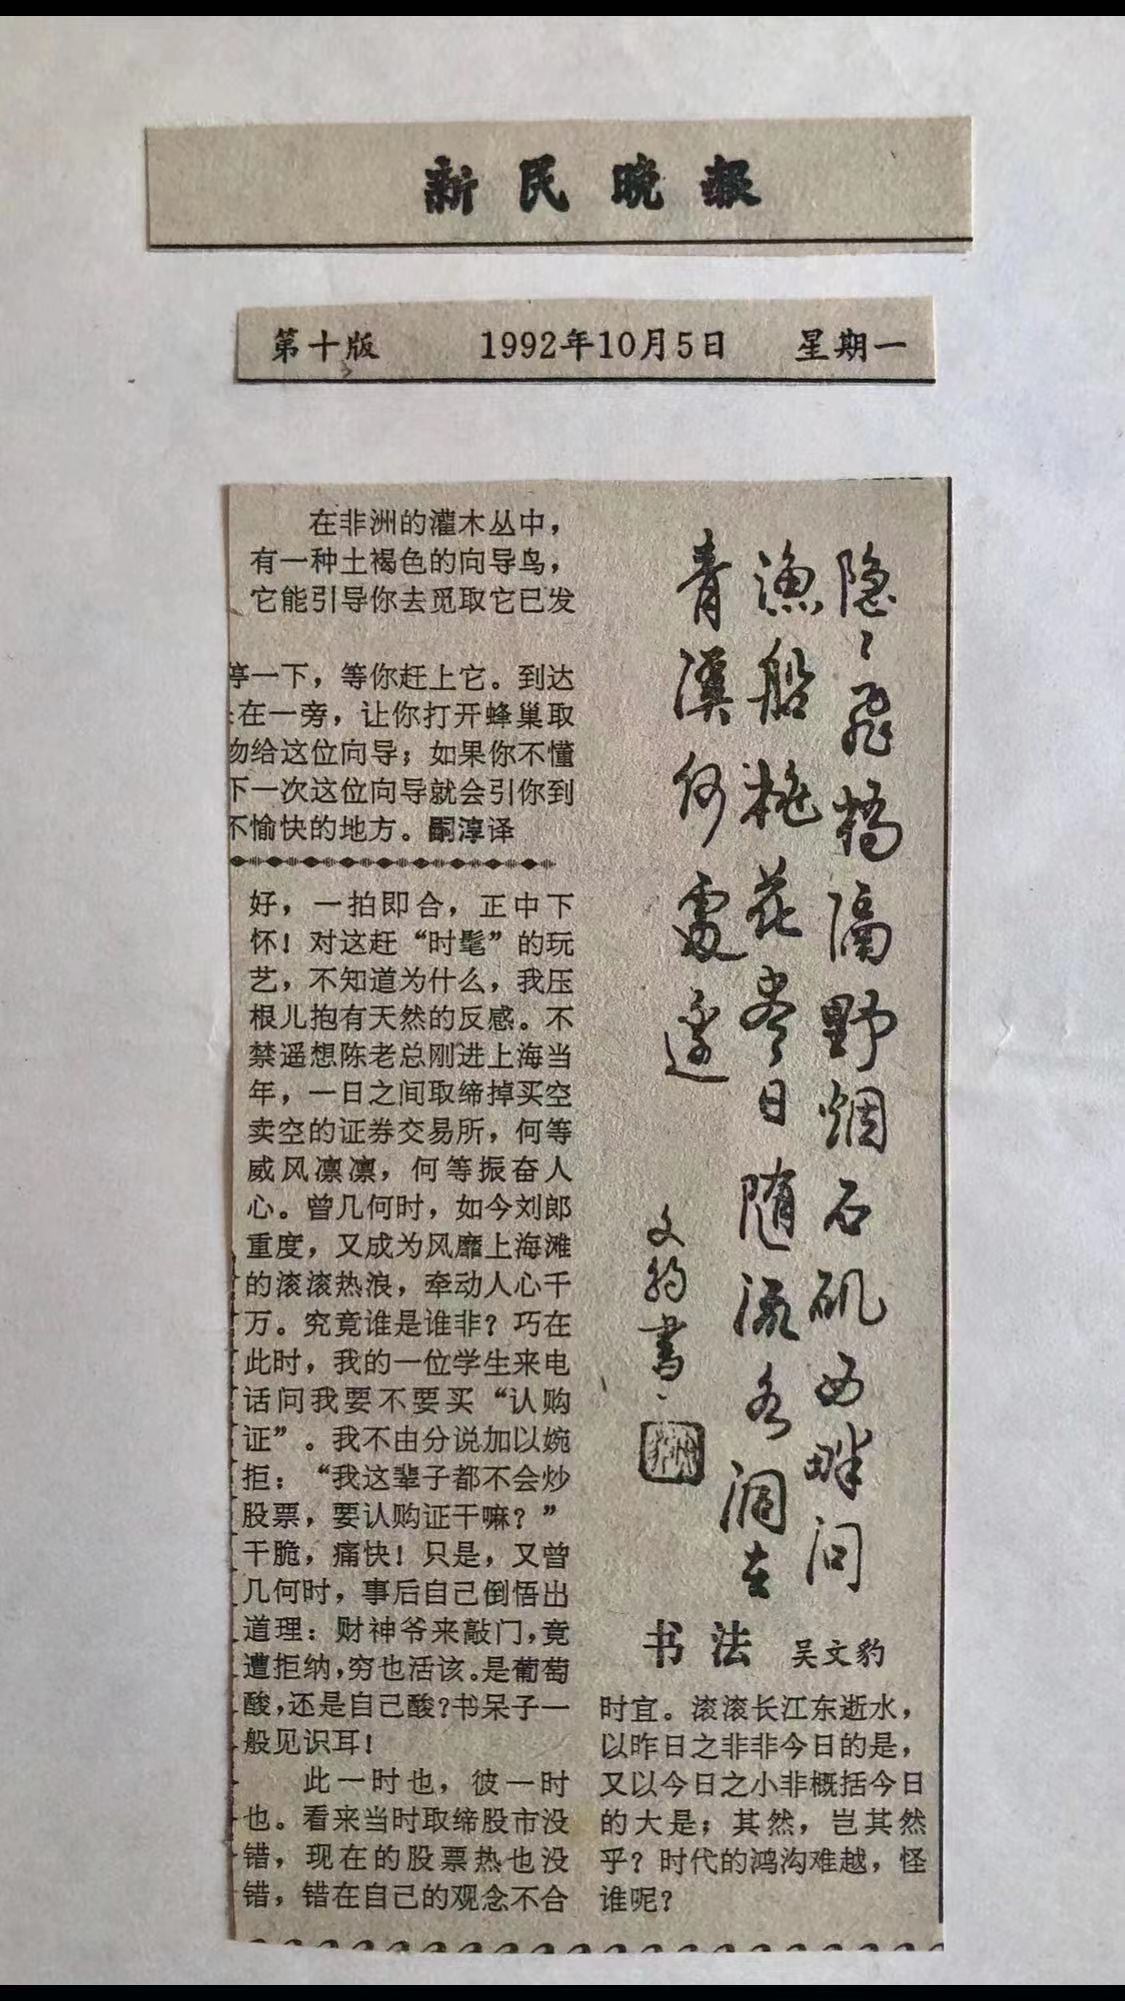 新民晚报
第十版 1992年10月5日 星期一
在非洲的灌木丛中，
有一种土褐色的向导鸟，
它能引导你去觅取它已发
停一下，等你赶上它。到达
在一旁，让你打开蜂巢取
物给这位向导；如果你不懂
下一次这位向导就会引你到
不愉快的地方。嗣淳译
好，一拍即合，正中下
怀！对这赶“时髦”的玩
艺，不知道为什么，我压
根儿抱有天然的反感。不
禁遥想陈老总刚进上海当
年，一日之间取缔掉买空
卖空的证券交易所，何等
威风凛凛，何等振奋人
心。曾几何时，如今刘郎
重度，又成为风靡上海滩
的滚滚热浪，牵动人心千
万。究竟谁是谁非？巧在
此时，我的一位学生来电
话问我要不要买“认购
证”。我不由分说加以婉
拒：“我这辈子都不会炒
股票，要认购证干嘛？”
干脆，痛快！只是，又曾
几何时，事后自己倒悟出
道理：财神爷来敲门，竟
遭拒纳，穷也活该。是葡萄
酸，还是自己酸？书呆子一
般见识耳！
此一时也，彼一时
也。看来当时取缔股市没
错，现在的股票热也没
错，错在自己的观念不合
隐〻飛橋隔野烟石矶西畔问
漁船桃花尽日随流水洞在
青溪何處邊
文豹書
书法 吴文豹
时宜。滚滚长江东逝水，
以昨日之非非今日的是，
又以今日之小非概括今日
的大是；其然，岂其然
乎？时代的鸿沟难越，怪
谁呢？